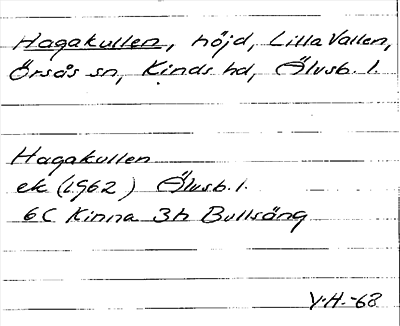 Hagakullen, höjd, Lilla Vallen,
Örsås sn, Kinds hd, Älvsb. l.
Hagakullen
ek (1962) Älvsb. l.
6C Kinna 3h Bullsäng
V.H.-68